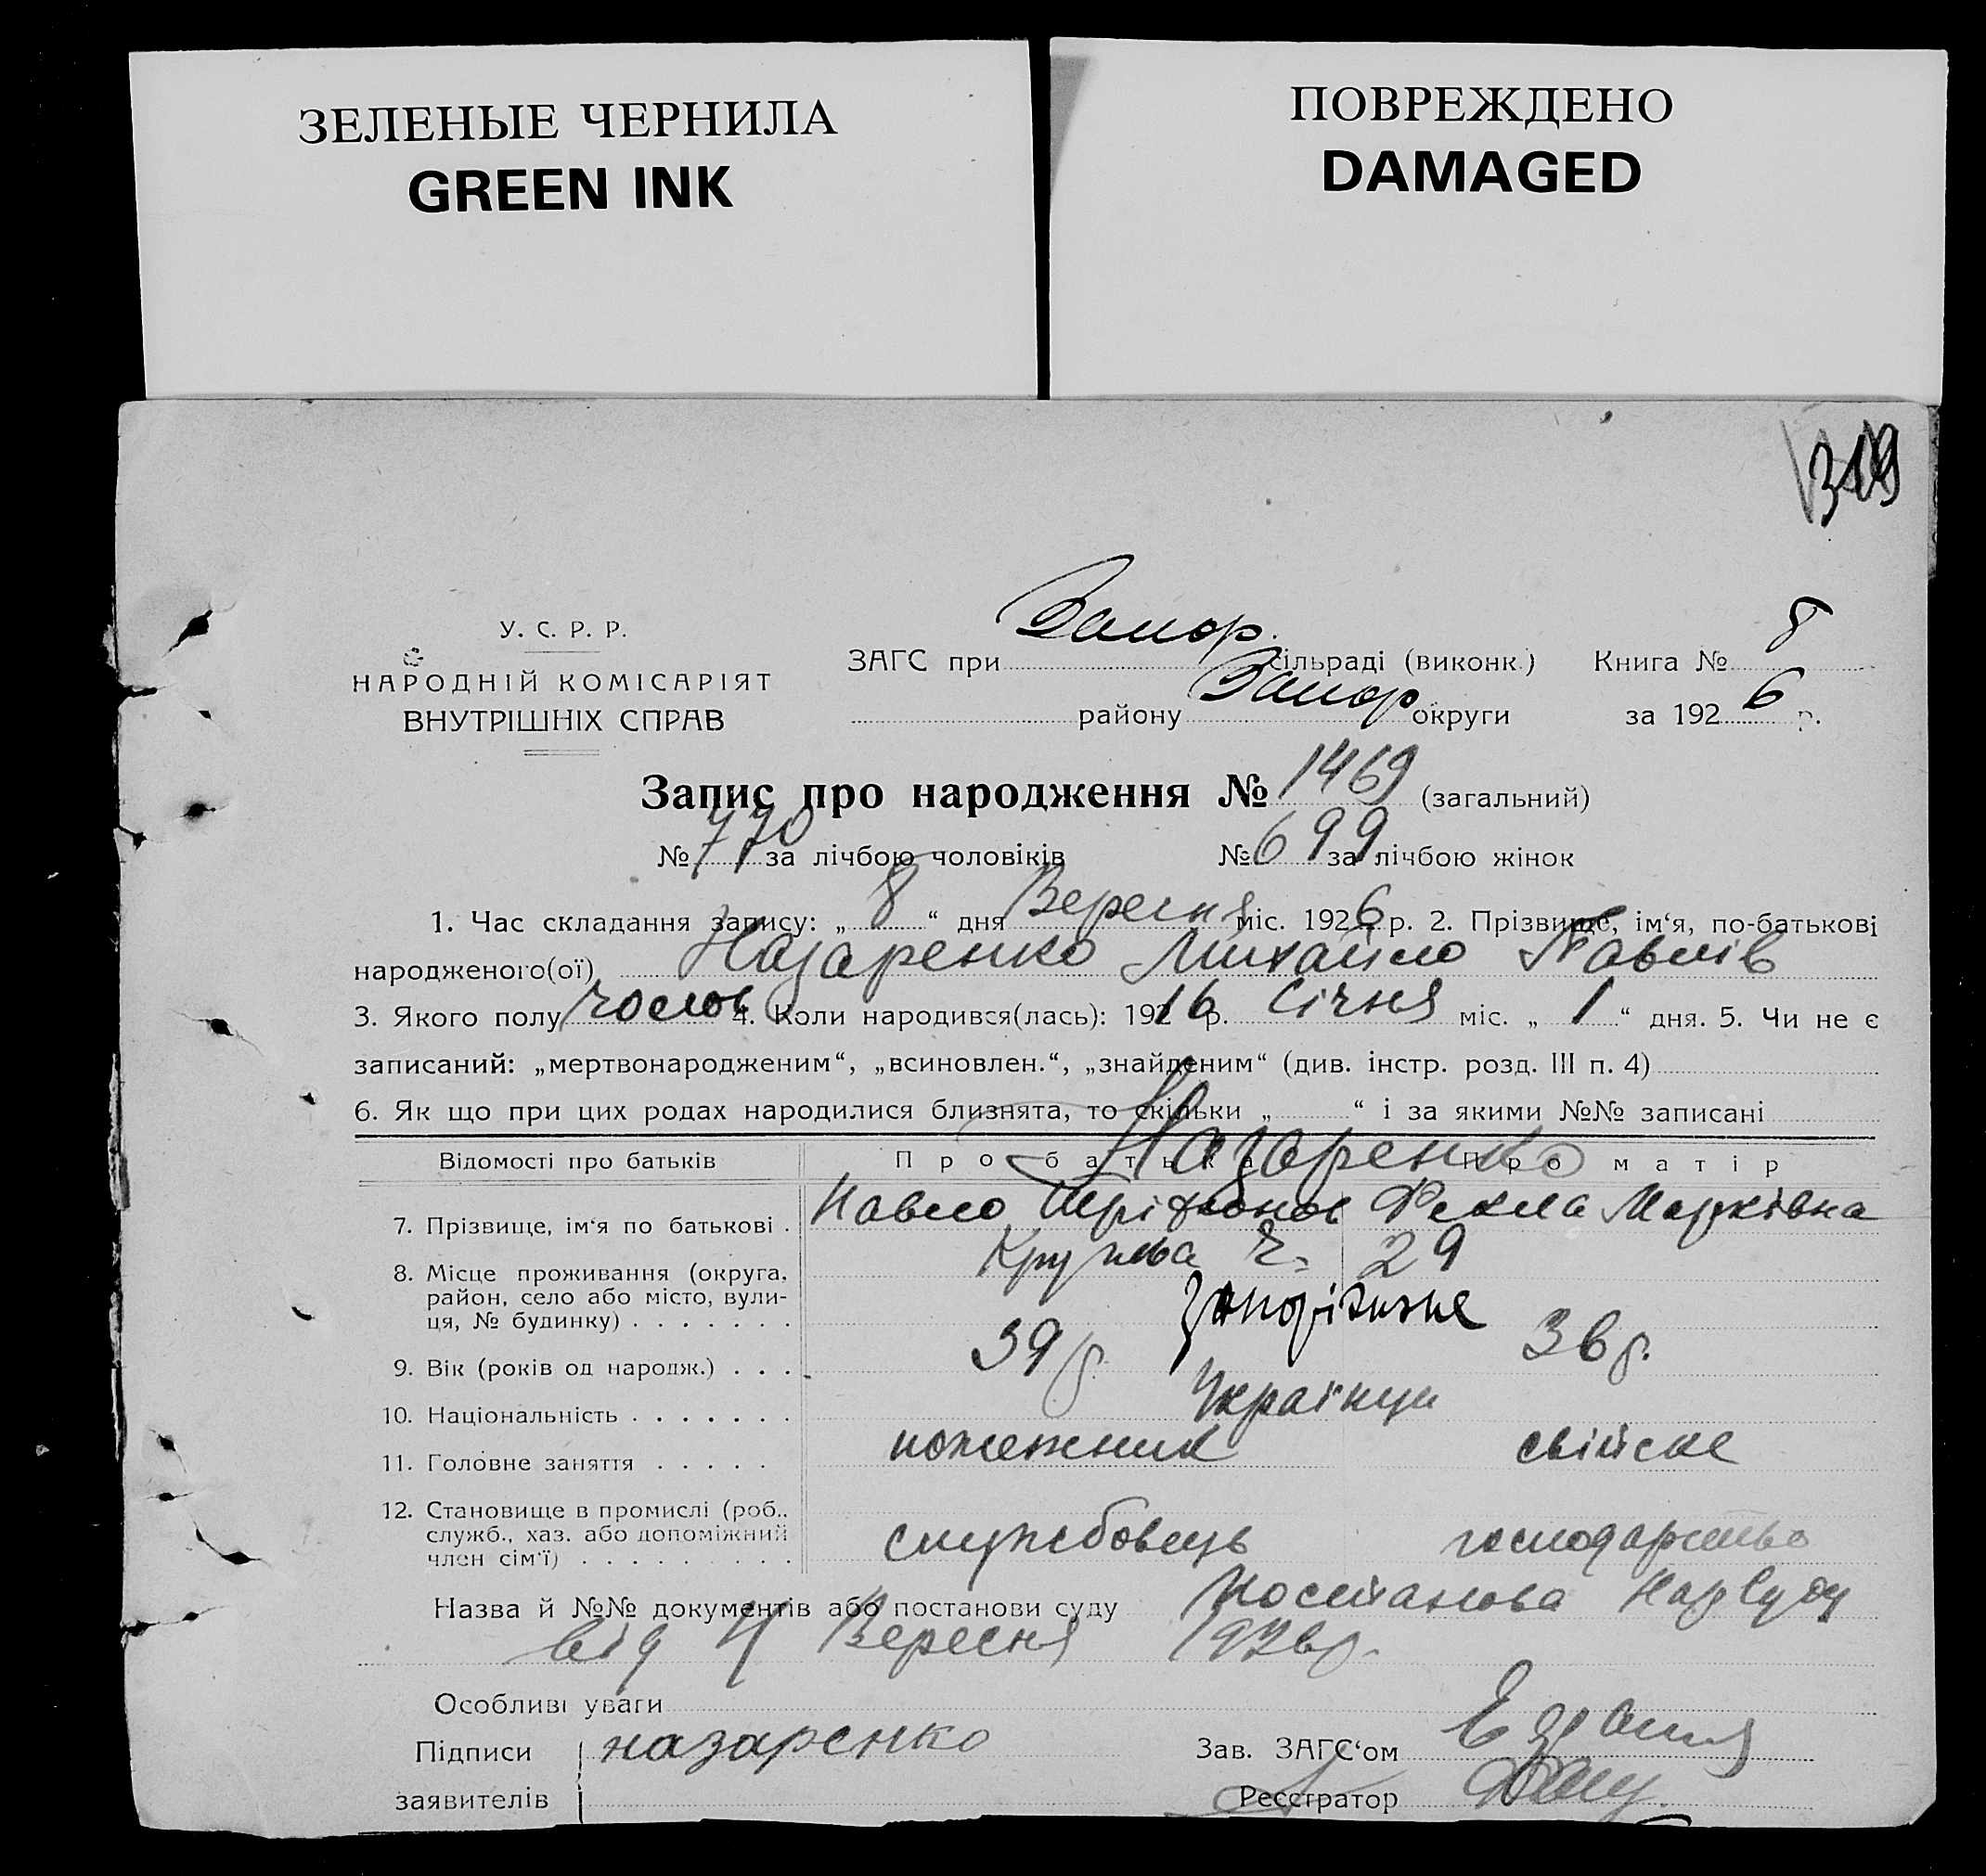 ЗЕЛЕНЫЕ ЧЕРНИЛА
GREEN INK
ПОВРЕЖДЕНО
DAMAGED
319
У. С. Р. Р.
НАРОДНІЙ КОМІСАРІЯТ
ВНУТРІШНІХ СПРАВ
ЗАГС при Запор. сільраді (виконк.) Книга № 8
району Запор округи за 1926 р.
Запис про народження № 1469 (загальний)
№ 770 за лічбою чоловіків № 699 за лічбою жінок
1. Час складання запису: „ 8 “ дня Вересня міс. 1926 р. 2. Прізвище, ім‘я, по-батькові
народженого(ої) Назаренко Михайло Павлів
3. Якого полу чолов 4. Коли народився(лась): 1916 р. Січня міс. „ 1 “ дня. 5. Чи не є
записаний: „мертвонародженим“, „всиновлен.“, „знайденим“ (див. інстр. розд. III п. 4)
6. Як що при цих родах народилися близнята, то скільки „ “ і за якими №№ записані
Відомості про батьків Про батька Про матір
Назаренко
7. Прізвище, ім‘я по батькові . Павло Трифонов Фекла Марківна
8. Місце проживання (округа, район, село або місто, вули-ця, № будинку) . . . . . . . Кругла ч. 29
Запоріжжє
9. Вік (років од народж.) . . . 39 р. 36 р.
10. Національність . . . . . . . Українци
11. Головне заняття . . . . . пожежник свійске
12. Становище в промислі (роб., служб., хаз. або допоміжний член сім‘ї) . . . . . . . . . службовець господарство
Назва й №№ документів або постанови суду Постанова Нарсуду
від 4 Вересня 1926 р.
Особливі уваги
Підписи назаренко Зав. ЗАГС‘ом
заявителів Реєстратор